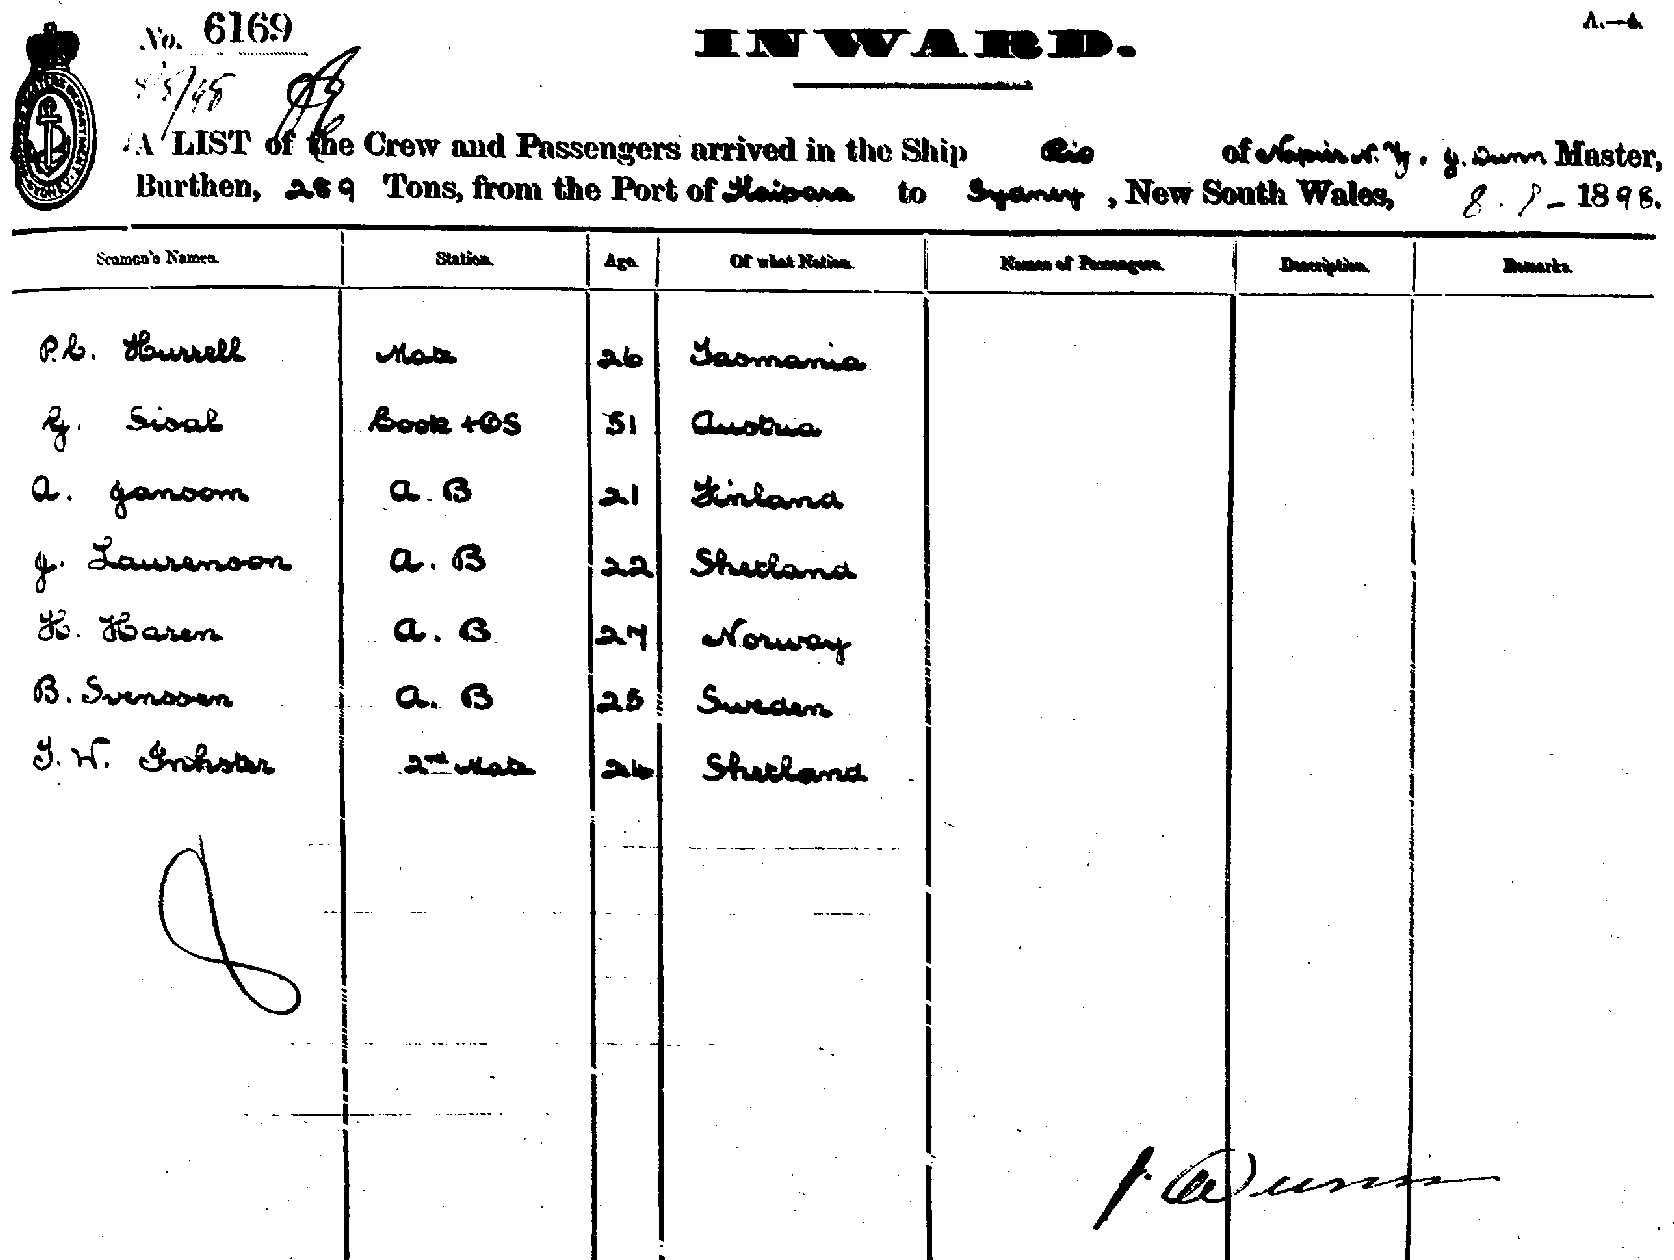 No. 6169
INWARD.
A.—4.
A LIST of the Crew and Passengers arrived in the Ship Rio of Napier N. Z. J. Dunn Master,
Burthen, 289 Tons, from the Port of Kaipara to Sydney, New South Wales, 1898.
Seamen's Names. Station. Age. Of what Nation. Names of Passengers. Description. Remarks.
P.C. Hurrell Mate 26 Tasmania
G. Sisal Cook + OS 51 Austria
A. Jansom A. B 21 Finland
J. Laurenson A. B 22 Shetland
H. Haren A. B 27 Norway
B. Svenssen A. B 25 Sweden
T. W. Inkster 2nd Mate 26 Shetland
J. Dunn